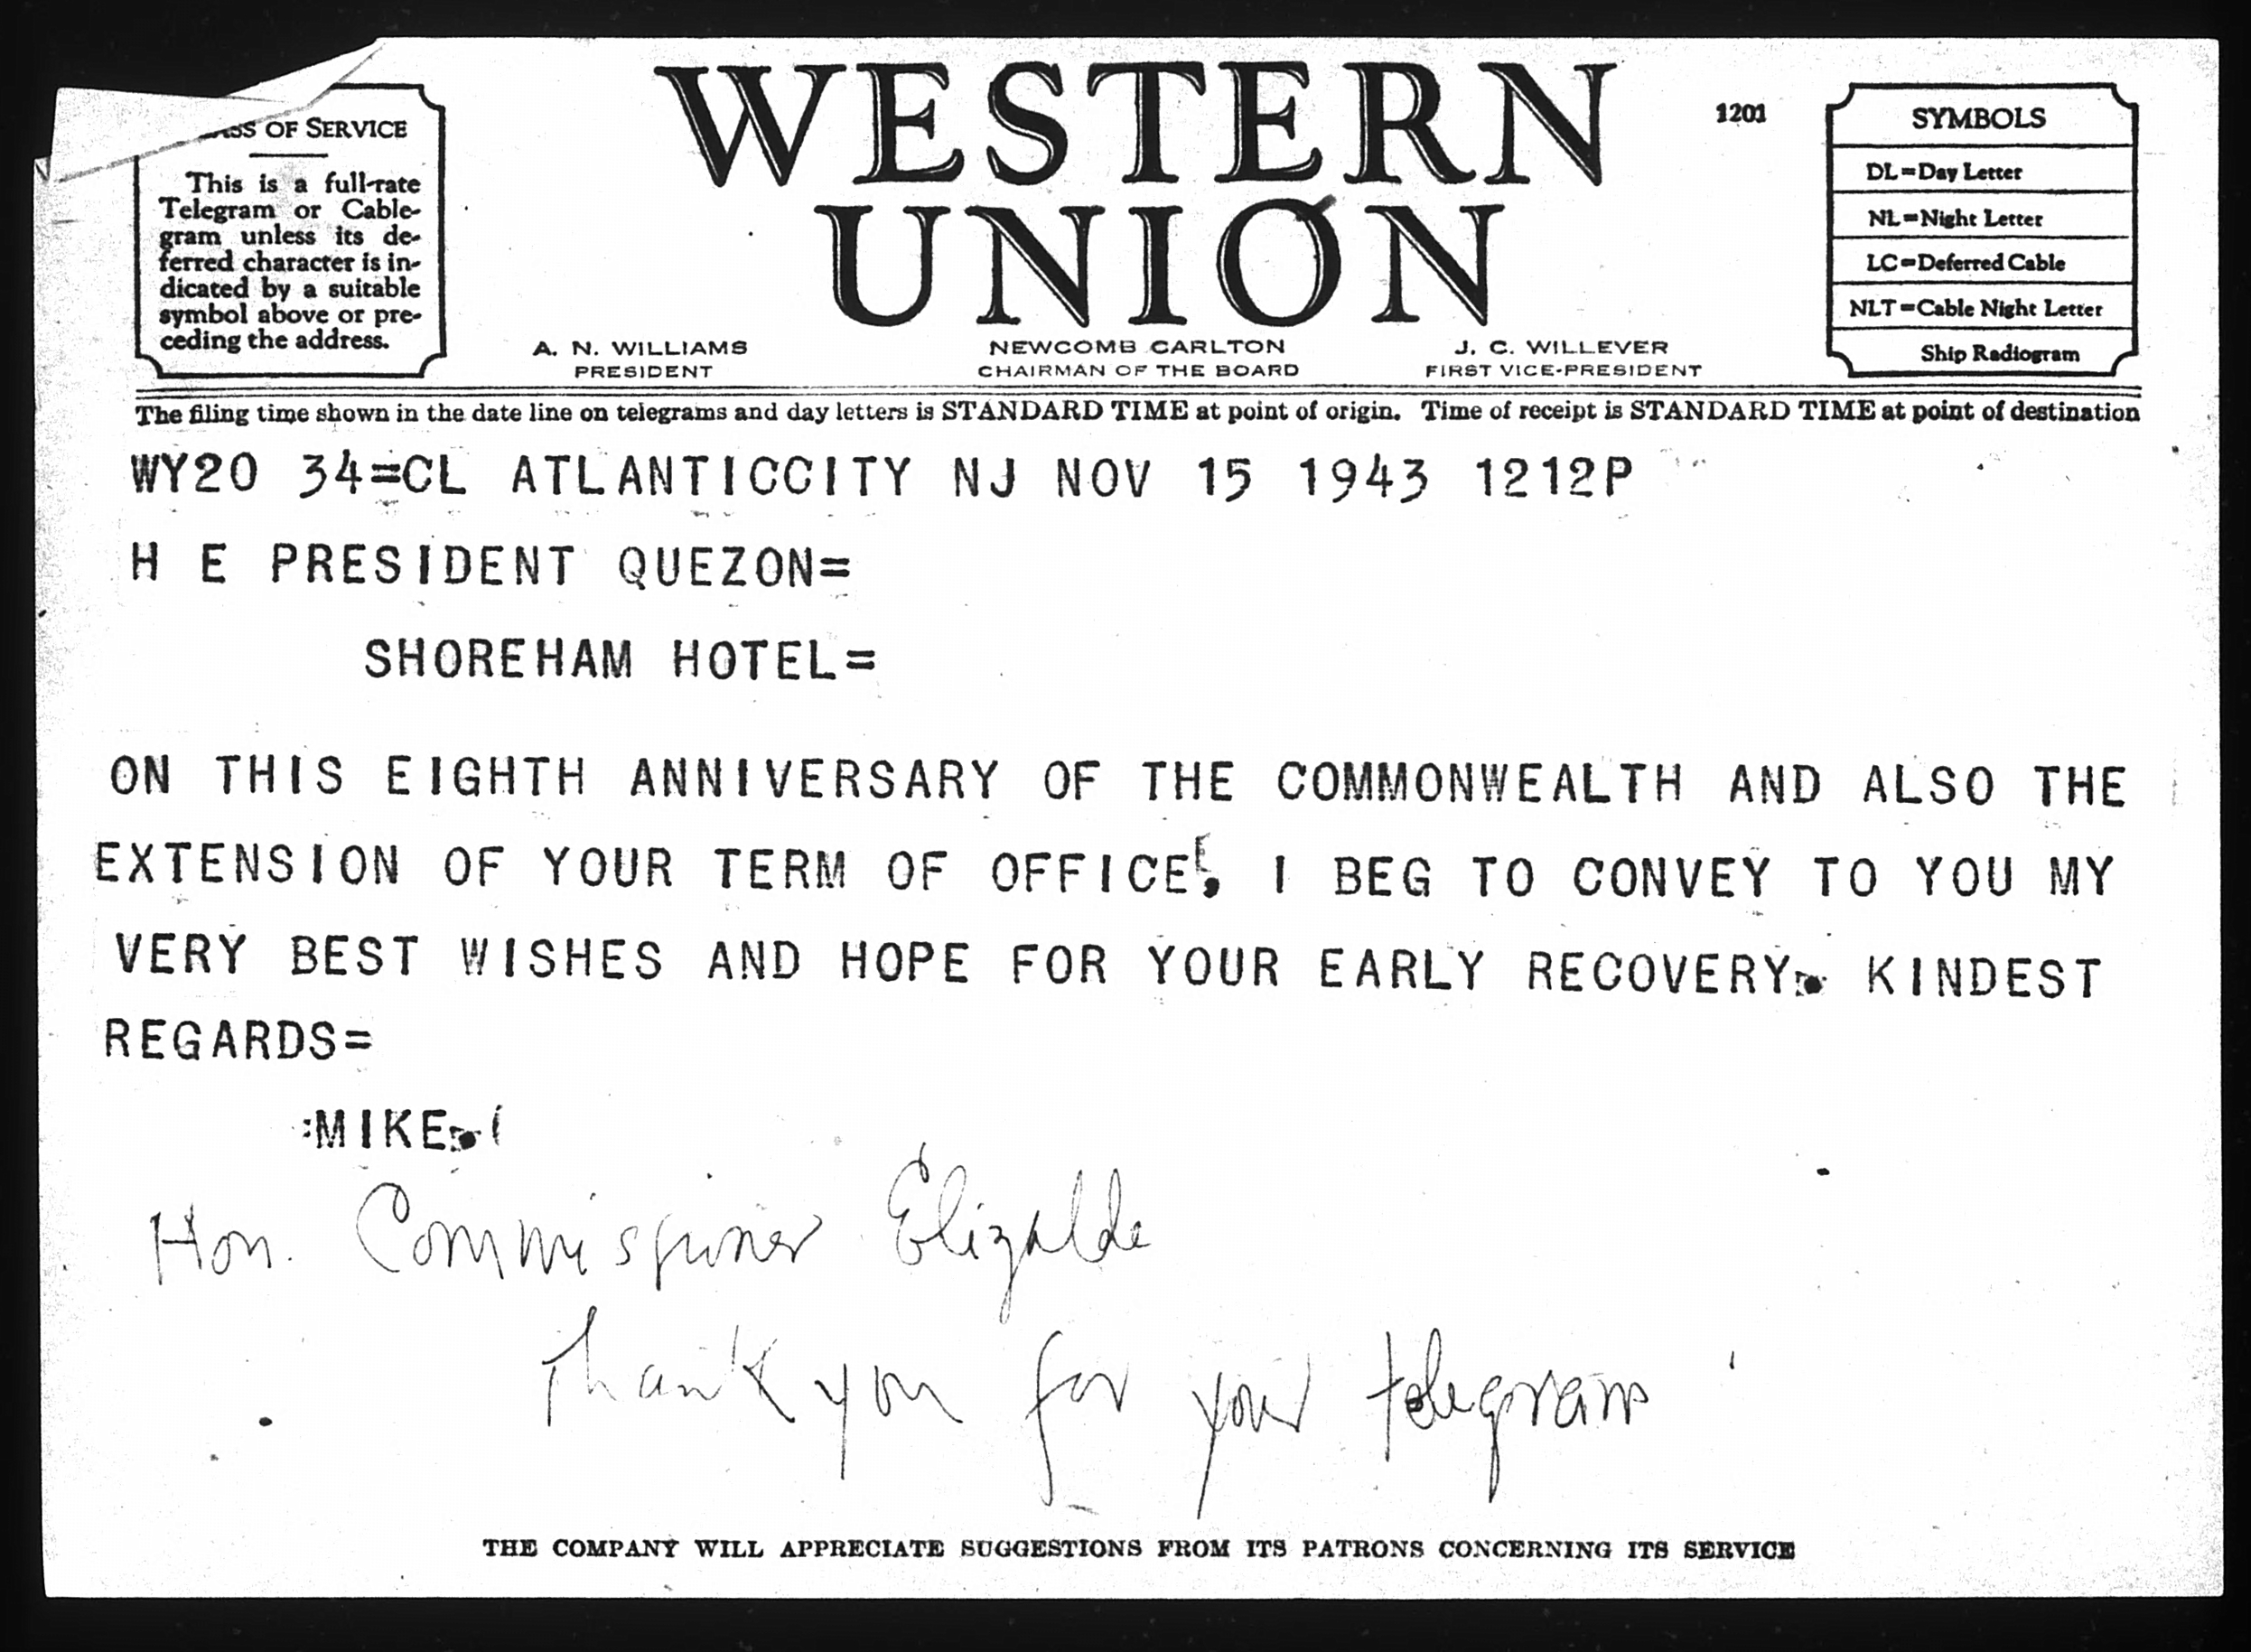 SS OF SERVICE
This is a full-rate
Telegram or Cable-
gram unless its de-
ferred character is in-
dicated by a suitable
symbol above or pre-
ceding the address.
WESTERN
UNION
1201
A. N. WILLIAMS
PRESIDENT
NEWCOMB CARLTON
CHAIRMAN OF THE BOARD
J. C. WILLEVER
FIRST VICE-PRESIDENT
SYMBOLS
DL=Day Letter
NL=Night Letter
LC=Deferred Cable
NLT=Cable Night Letter
Ship Radiogram
The filing time shown in the date line on telegrams and day letters is STANDARD TIME at point of origin. Time of receipt is STANDARD TIME at point of destination
WY20 34=CL ATLANTICCITY NJ NOV 15 1943 1212P
H E PRESIDENT QUEZON=
SHOREHAM HOTEL=
ON THIS EIGHTH ANNIVERSARY OF THE COMMONWEALTH AND ALSO THE
EXTENSION OF YOUR TERM OF OFFICE, I BEG TO CONVEY TO YOU MY
VERY BEST WISHES AND HOPE FOR YOUR EARLY RECOVERY. KINDEST
REGARDS=
:MIKE.
Hon. Commissioner Elizalde
Thank you for your telegram
THE COMPANY WILL APPRECIATE SUGGESTIONS FROM ITS PATRONS CONCERNING ITS SERVICE